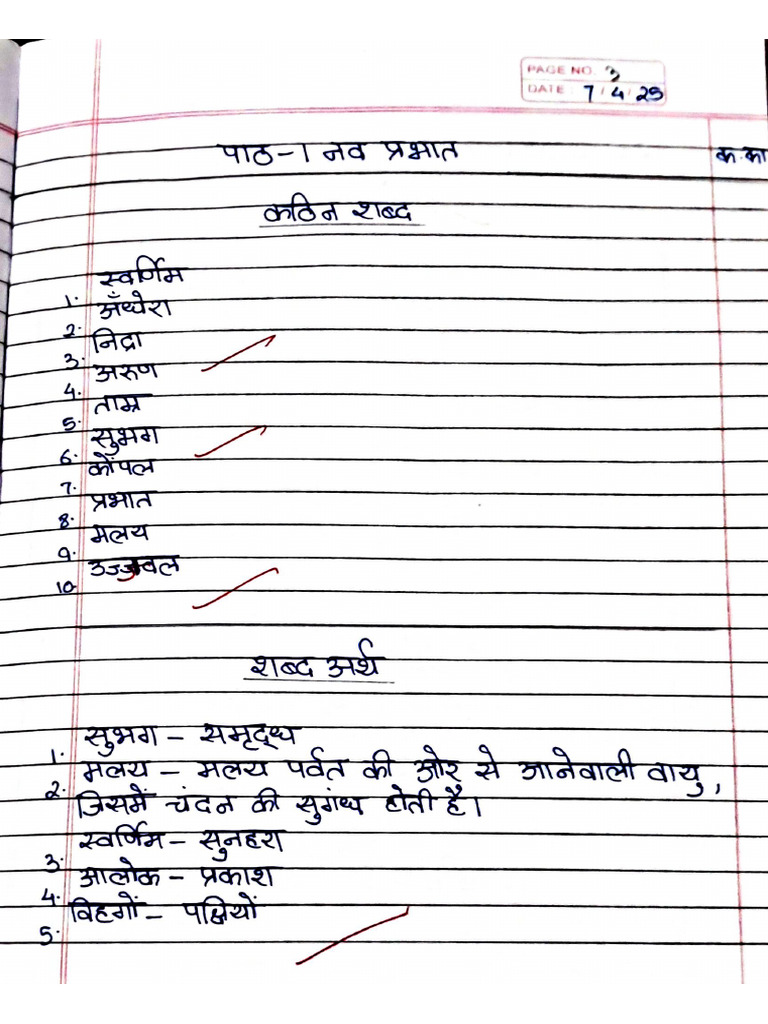 PAGE NO. 3
DATE : 7/4/25
पाठ-1 नव प्रभात
क.का
कठिन शब्द
1. स्वर्णिम
2. अँधेरा
3. निद्रा
4. अरुण
5. ताम्र
6. सुभग
7. कोंपल
8. प्रभात
9. मलय
10. उज्ज्वल
शब्द अर्थ
1. सुभग - समृद्ध
2. मलय - मलय पर्वत की ओर से आनेवाली वायु,
जिसमें चंदन की सुगंध होती है।
3. स्वर्णिम - सुनहरा
4. आलोक - प्रकाश
5. विहगों - पक्षियों